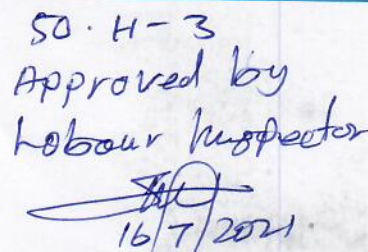 50. H-3
Approved by
Labour Inspector
16/7/2021